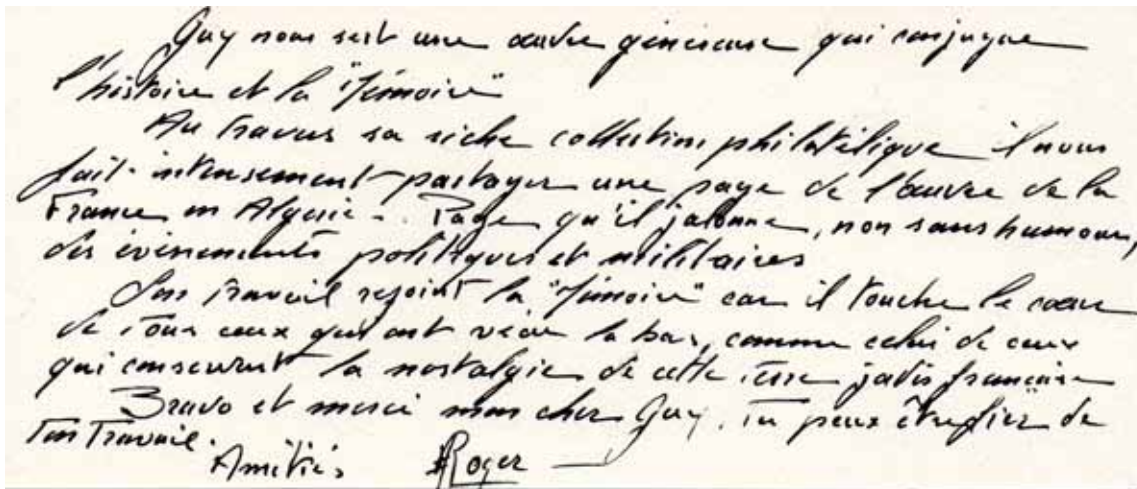 Guy nous sert une œuvre généreuse qui conjugue
l'histoire et la "Mémoire"
Au travers sa riche collection philatélique il nous
fait intensement partager une page de l'œuvre de la
France en Algérie -. Page qu'il jalonne, non sans humour,
des évènements politiques et militaires
Son travail rejoint la "Mémoire" car il touche le cœur
de tous ceux qui ont vécu la bas, comme celui de ceux
qui conservent la nostalgie de cette terre jadis française
Bravo et merci mon cher Guy. Tu peux être fier de
ton travail.
Amitiés Roger